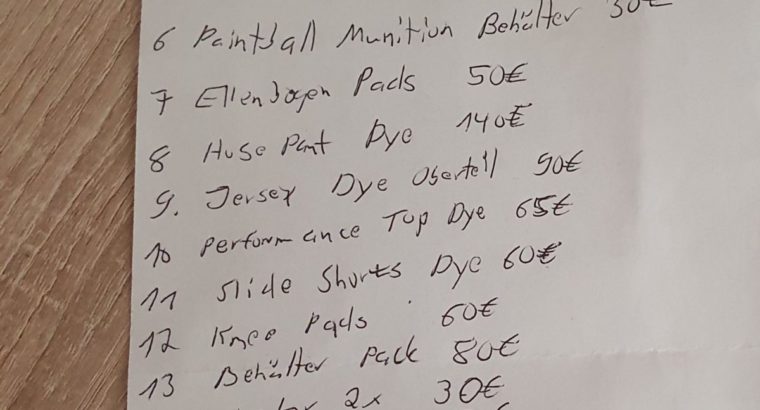 6 Paintball Munition Behälter 30€
7 Ellenbogen Pads 50€
8 Hose Pant Dye 140€
9. Jersey Dye Oberteil 90€
10 Performance Top Dye 65€
11 Slide Shorts Dye 60€
12 Knee Pads 60€
13 Behälter Pack 80€
2x 30€